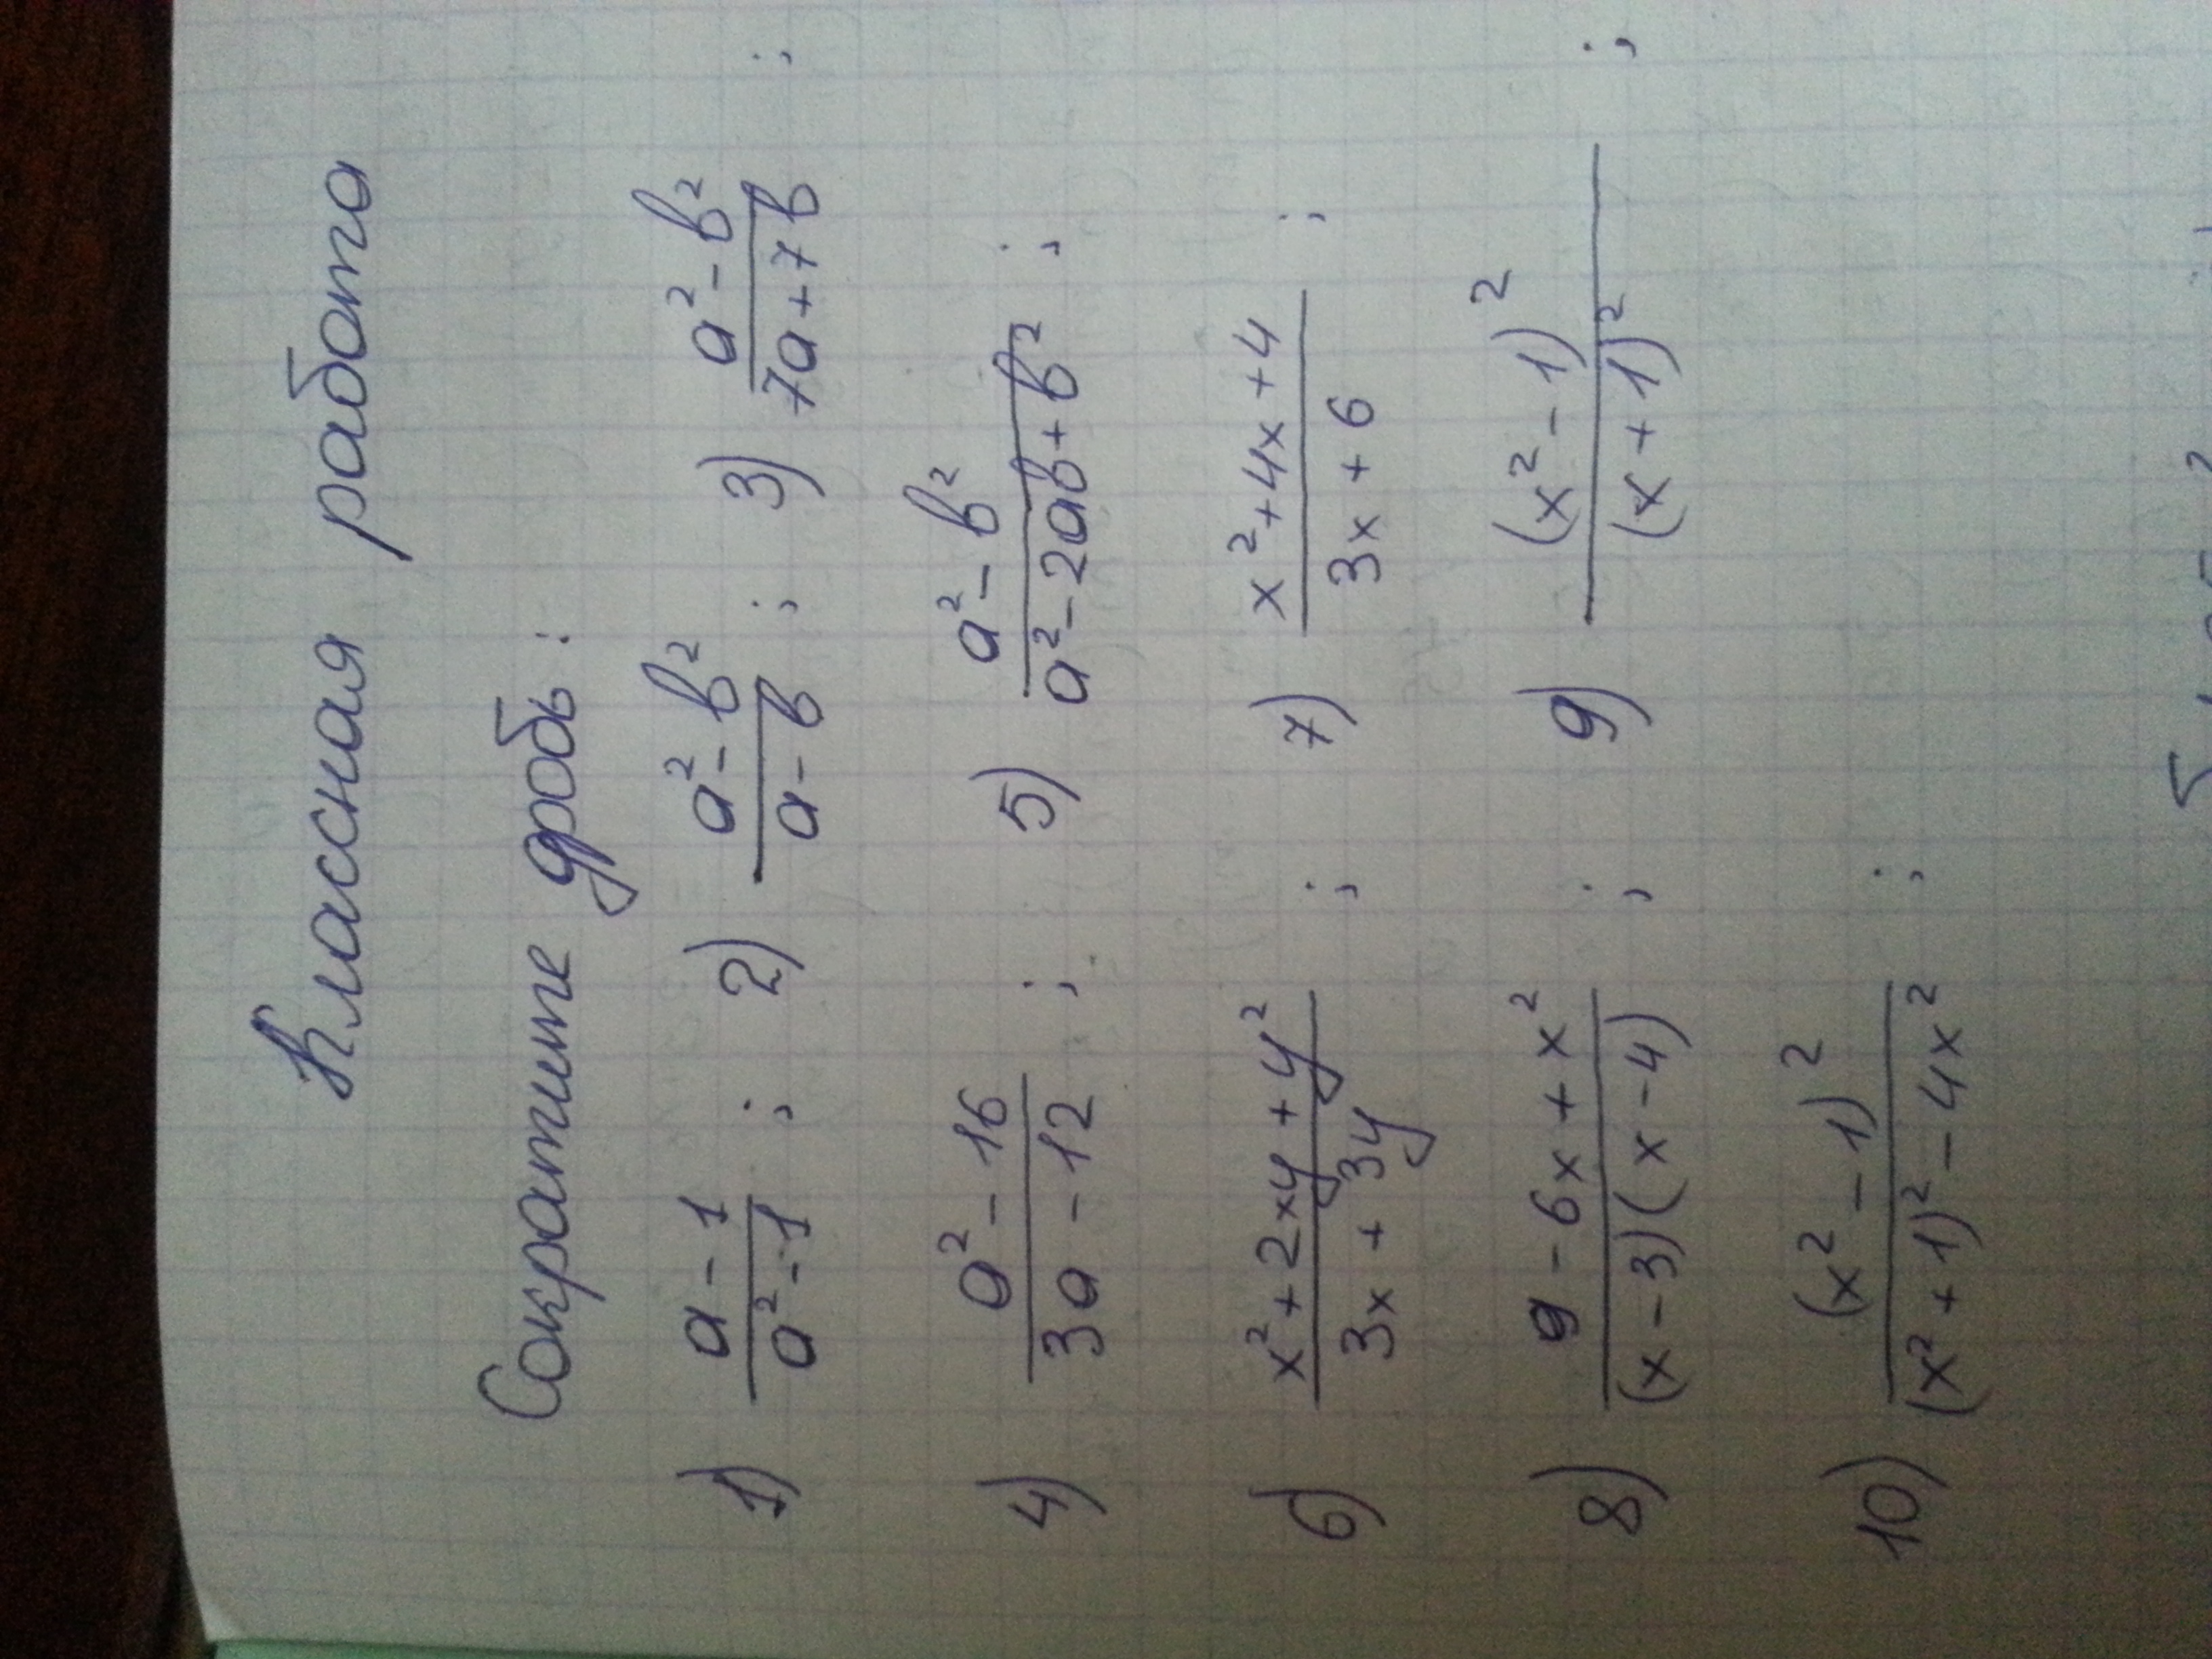 Классная работа
Сократите дробь:
1) (a - 1)/(a² - 1); 2) (a² - b²)/(a - b); 3) (a² - b²)/(7a + 7b);
4) (a² - 16)/(3a - 12); 5) (a² - b²)/(a² - 2ab + b²);
6) (x² + 2xy + y²)/(3x + 3y); 7) (x² + 4x + 4)/(3x + 6);
8) (9 - 6x + x²)/((x - 3)(x - 4)); 9) (x² - 1)²/(x + 1)²;
10) (x² - 1)²/((x² + 1)² - 4x²);